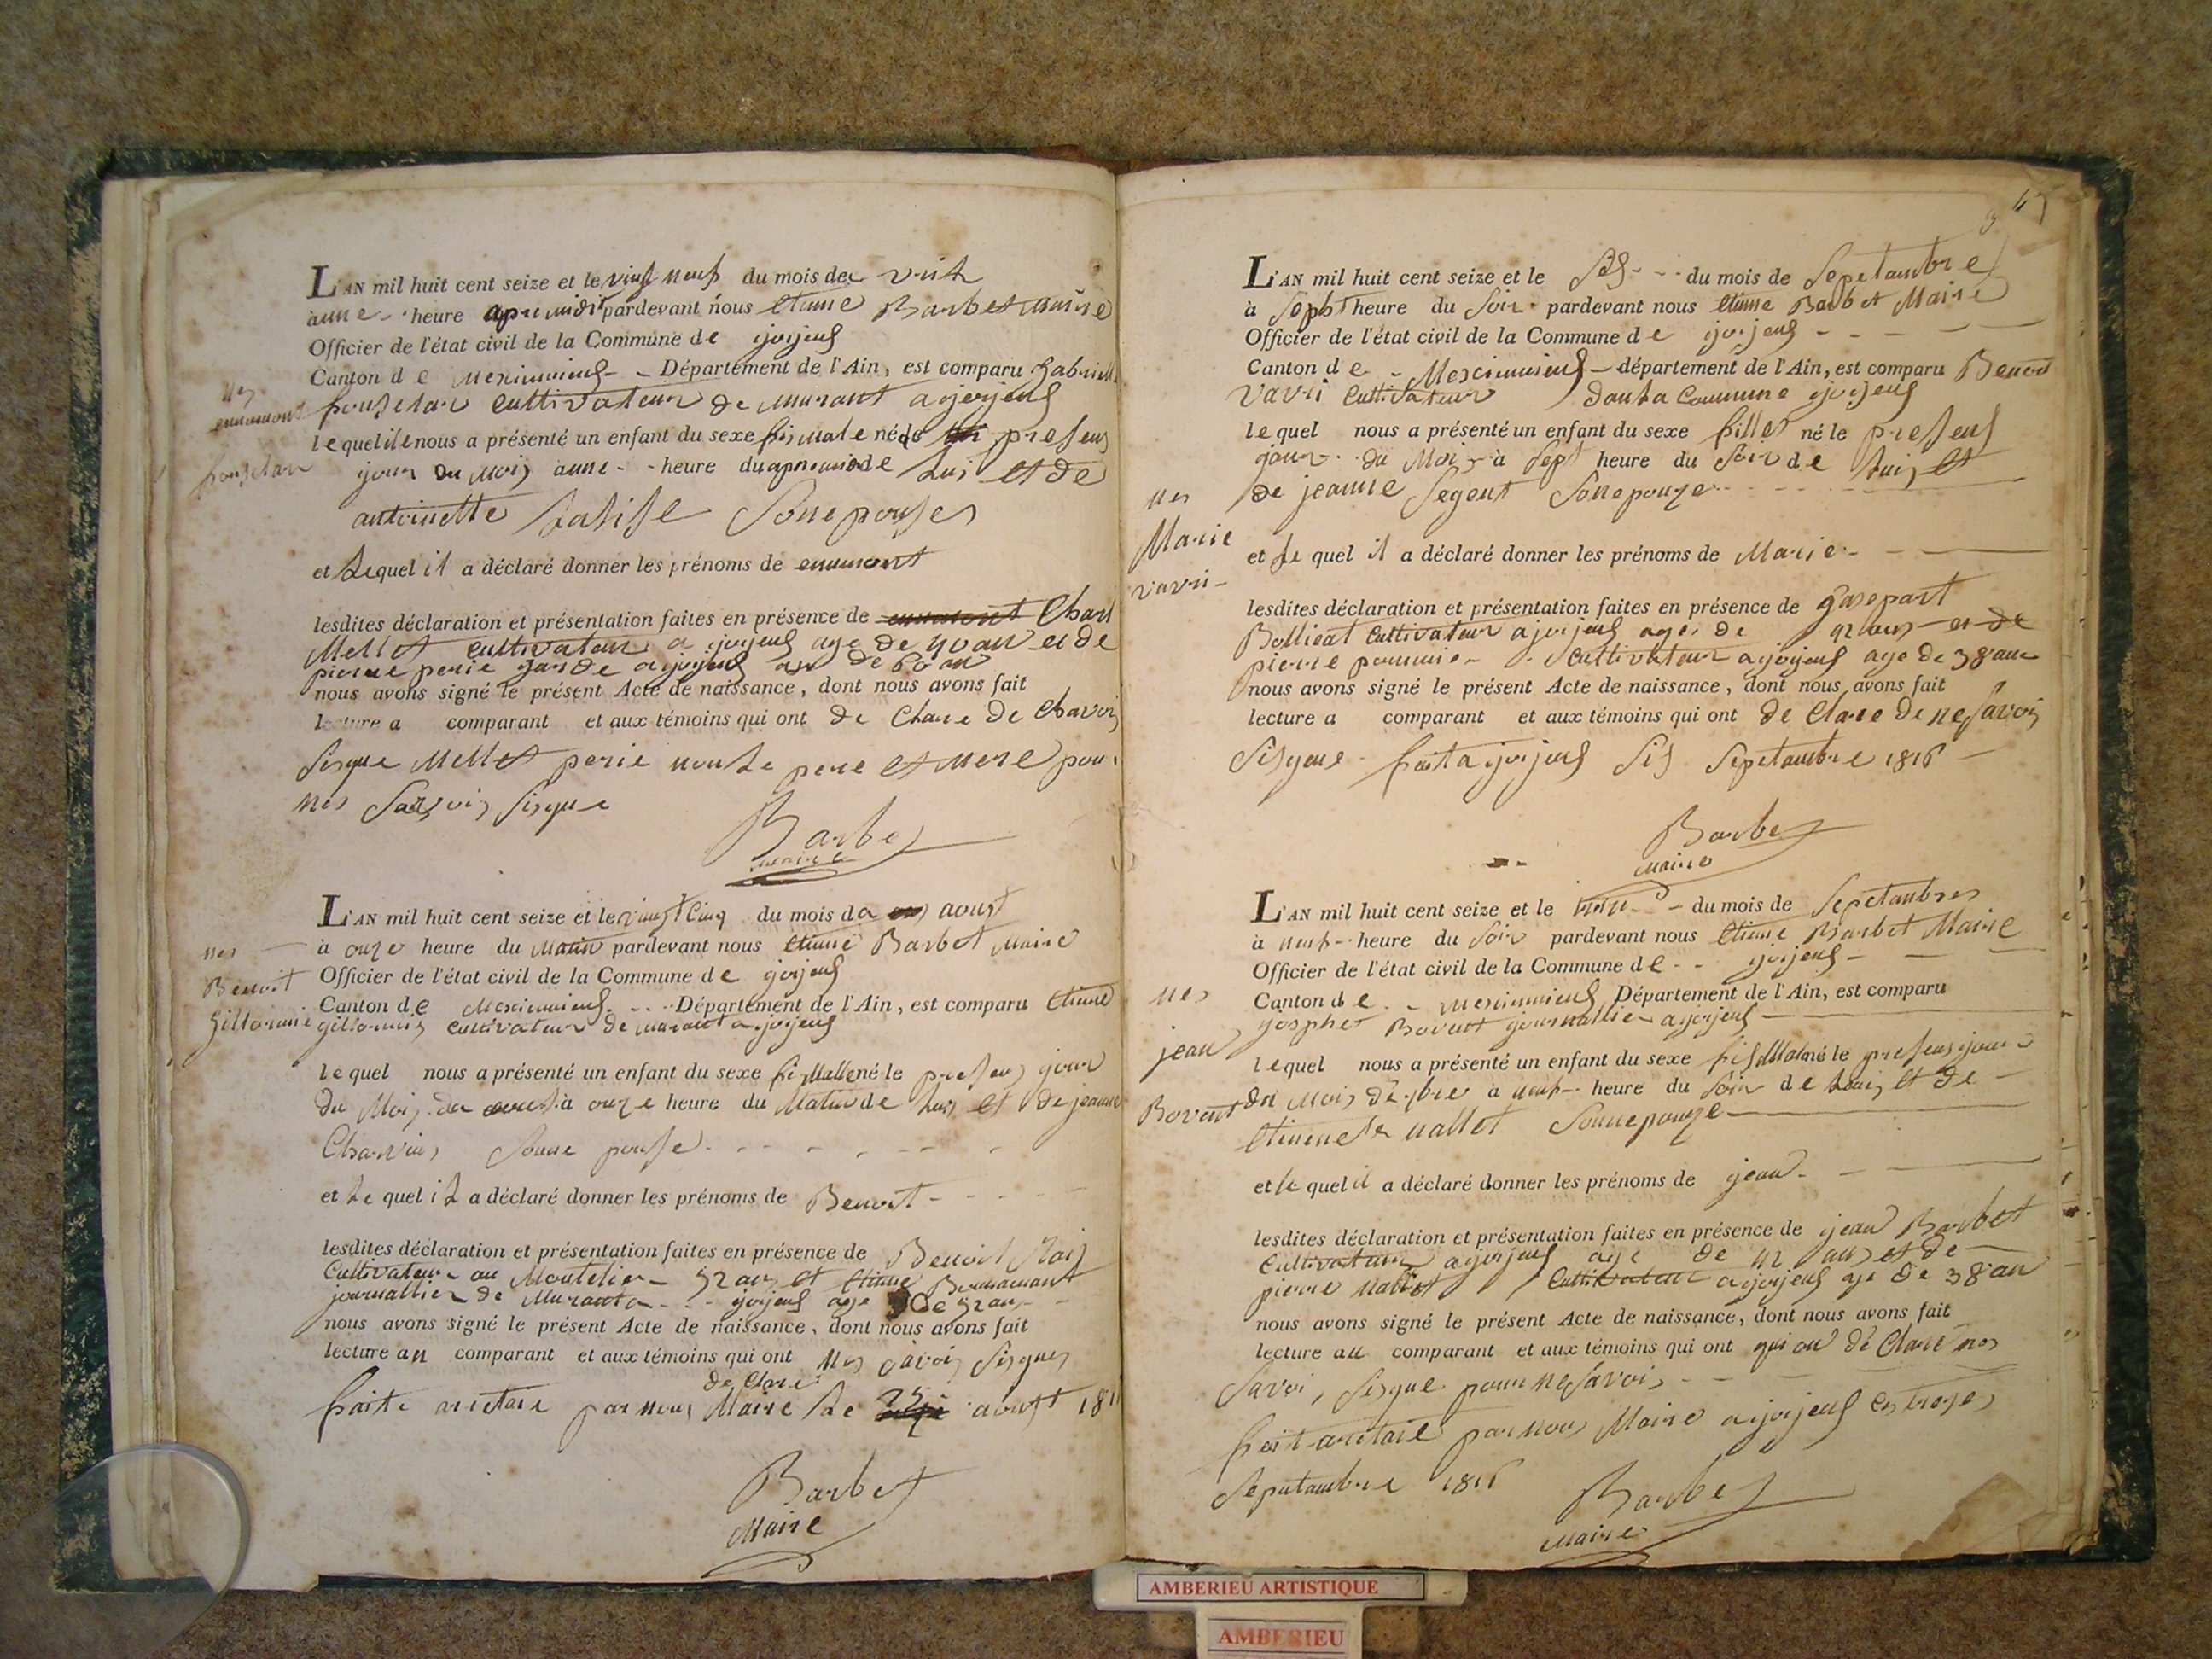 L'AN mil huit cent seize et le vint neuf du mois de
heure apremidi pardevant nous etiene Barbet maire
Officier de l'état civil de la Commune de joijeus
Canton de Meximieus - Département de l'Ain, est comparu gabriell
cultivateur de murant a joijeus
lequel il nous a présenté un enfant du sexe né de presens
jour du mois heure du de lui et de
antoinette Sonepouses
et lequel il a déclaré donner les prénoms de
lesdites déclaration et présentation faites en présence de Charl
Mellet cultivateur a joijeus age de 40 an et de
pierre perie garde a joijeus de 60 an
nous avons signé le présent Acte de naissance, dont nous avons fait
lecture a comparant et aux témoins qui ont de Clare de
Sisgne Mellet perie non le pere et mere pour
nes Savois Sisgne
Barbet
maire
nes
Benoit
gillormie
L'AN mil huit cent seize et le vingt Cinq du mois da aoust
à onze heure du matin pardevant nous etiene Barbet maire
Officier de l'état civil de la Commune de joijeus
Canton de Meximieus - Département de l'Ain, est comparu etiene
cultivateur de murant a joijeus
lequel nous a présenté un enfant du sexe né le presens jour
du Mois à onze heure du Matin de lui et de jeanne
Charvin Sonne pouse
et le quel il a déclaré donner les prénoms de Benoit
lesdites déclaration et présentation faites en présence de Benoit
Cultivateur au Montelier 52 ans et etiene
journallier de Murant a joijeus age de 52 ans
nous avons signé le présent Acte de naissance, dont nous avons fait
lecture au comparant et aux témoins qui ont nes Savois Sisgnes
de Clare
faite arretare par nous Maire le 25 aoust 181
Barbet
Maire
47
L'AN mil huit cent seize et le Sis du mois de Sepetambre
à Sept heure du Soir pardevant nous etiene Barbet Maire
Officier de l'état civil de la Commune de joijeus
Canton de Meximieus - département de l'Ain, est comparu Benoit
Vavri Cultivateur dans la Commune joijeus
lequel nous a présenté un enfant du sexe filles né le presens
jour du Mois à Sept heure du Soir de lui et
de jeanne Segent Sonepouze
nes
Marie
Vavri
et le quel il a déclaré donner les prénoms de Marie
lesdites déclaration et présentation faites en présence de gasepart
Bollieat Cultivateur a joijeus age de 42 ans et de
pierre Cultivateur a joijeus age de 38 ans
nous avons signé le présent Acte de naissance, dont nous avons fait
lecture a comparant et aux témoins qui ont de Clare de ne Savois
Sisgne fait a joijeus Sis Sepetambre 1816
Barbet
maire
L'AN mil huit cent seize et le du mois de Sepetambres
à neuf heure du Soir pardevant nous etiene Barbet Maire
Officier de l'état civil de la Commune de joijeus
Canton de meximieus Département de l'Ain, est comparu
josphes Bovent journallier a joijeus
nes
jean
Bovent
lequel nous a présenté un enfant du sexe né le presens jour
du Mois de 7bre à neuf heure du Soir de lui et de
nallet Sonnepouze
et le quel il a déclaré donner les prénoms de jean
lesdites déclaration et présentation faites en présence de jean Barbet
Cultivateur a joijeus age de 42 ans et de
pierre nallet Cultivateur a joijeus age de 38 an
nous avons signé le présent Acte de naissance, dont nous avons fait
lecture au comparant et aux témoins qui ont qui on de Clare nes
Savoi, Sisgne pour ne Savois
fait arretare par nous Maire a joijeus les treges
Sepetambre 1816
Barbet
maire
AMBERIEU ARTISTIQUE
AMBERIEU